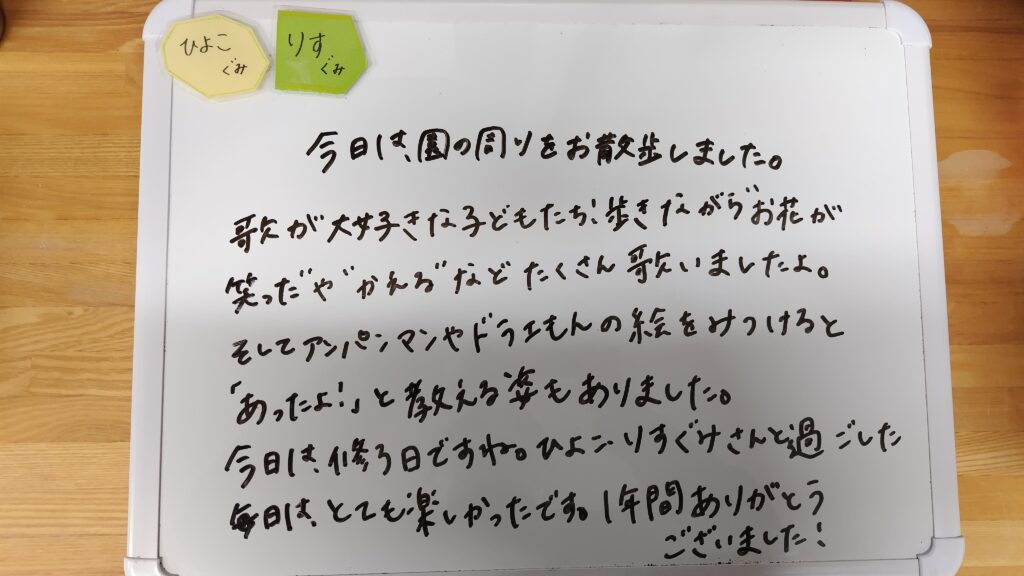 ひよこ
ぐみ
りす
ぐみ
今日は、園の周りをお散歩しました。
歌が大好きな子どもたち!歩きながら"お花が
笑った"や"かえる"などたくさん歌いましたよ。
そしてアンパンマンやドラエもんの絵をみつけると
「あったよ!」と教える姿もありました。
今日は、修了日ですね。ひよこ・りすぐみさんと過ごした
毎日は、とても楽しかったです。1年間ありがとう
ございました!